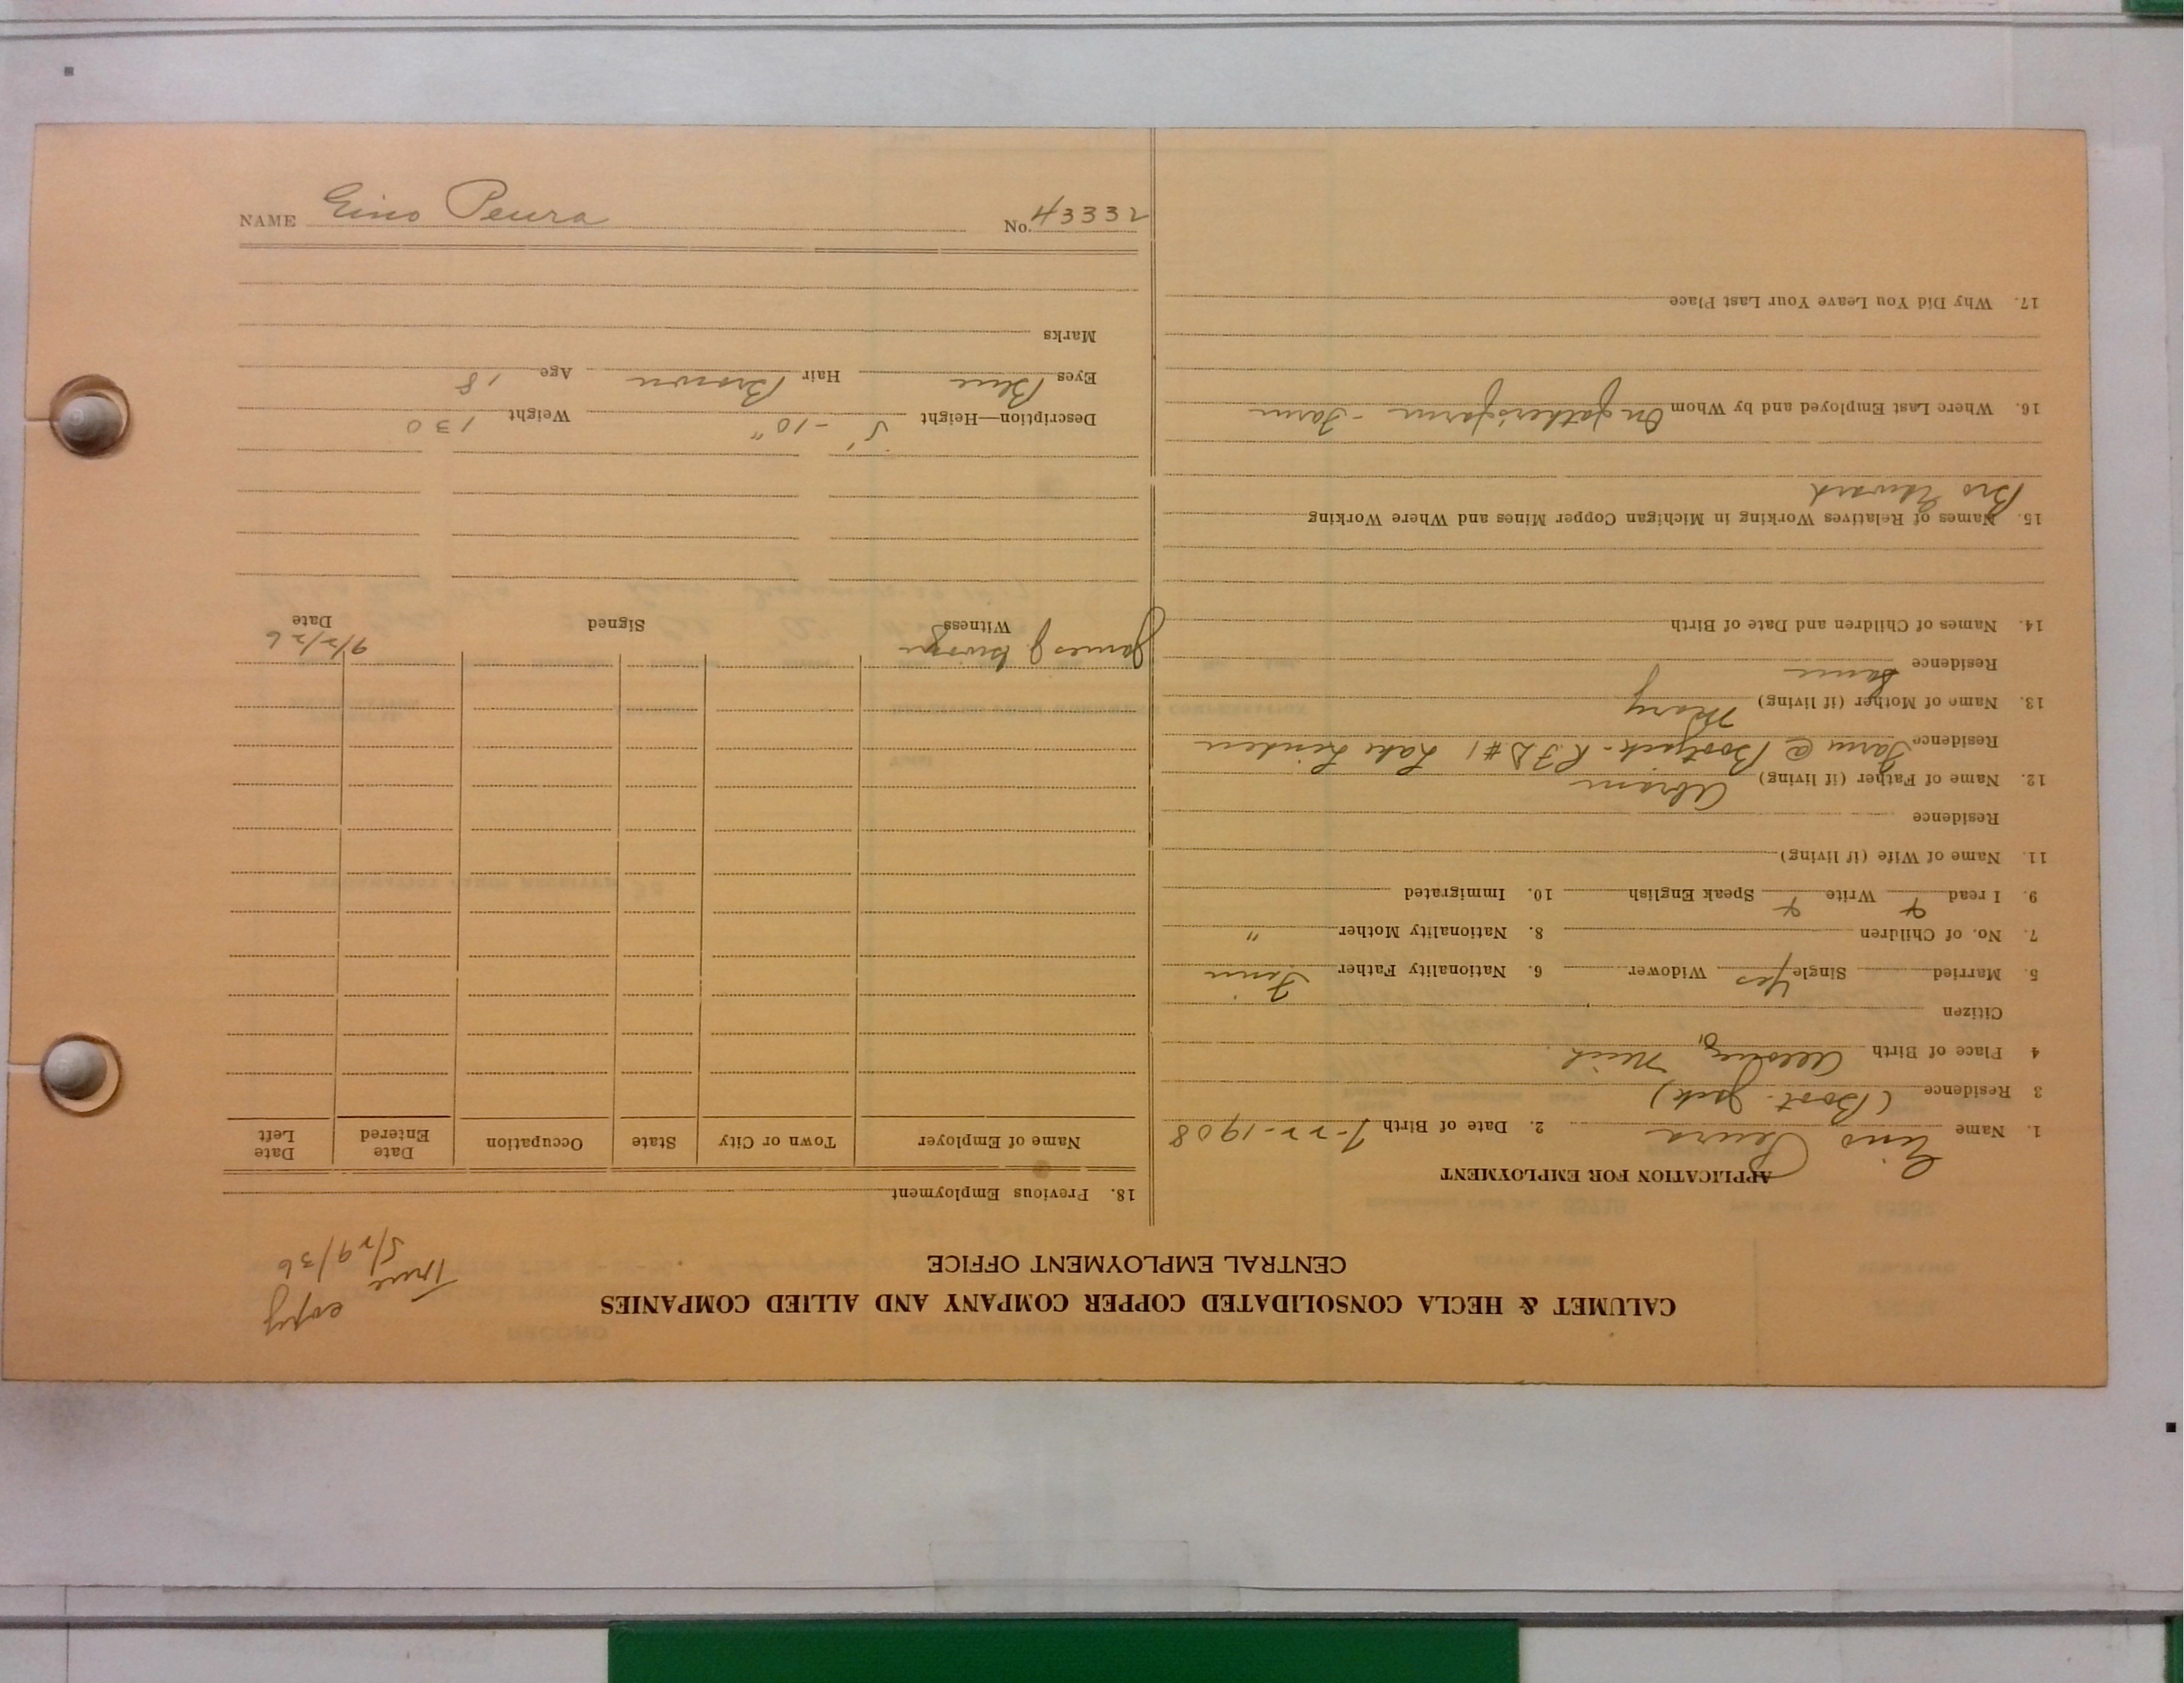 CALUMET & HECLA CONSOLIDATED COPPER COMPANY AND ALLIED COMPANIES
CENTRAL EMPLOYMENT OFFICE
True copy
5/29/36
APPLICATION FOR EMPLOYMENT
1. Name Eino Peura 2. Date of Birth 7-22-1908
3 Residence (Boot-Jack)
4 Place of Birth Mich
Citizen
5. Married Single Yes Widower 6. Nationality Father Finn
7. No. of Children 8. Nationality Mother "
9. I read Write Speak English 10. Immigrated
11. Name of Wife (if living)
Residence
12. Name of Father (if living) Abram
Residence Farm @ Bootjack - RFD #1 Lake Linden
13. Name of Mother (if living) Mary
Residence Same
14. Names of Children and Date of Birth
15. Names of Relatives Working in Michigan Copper Mines and Where Working
Bro Edward
16. Where Last Employed and by Whom On fathers farm - Farm
17. Why Did You Leave Your Last Place
18. Previous Employment
Name of Employer Town or City State Occupation Date Entered Date Left
James J. 9/2/26
Witness Signed Date
Description—Height 5'-10" Weight 130
Eyes Blue Hair Brown Age 18
Marks
NAME Eino Peura No. 43332